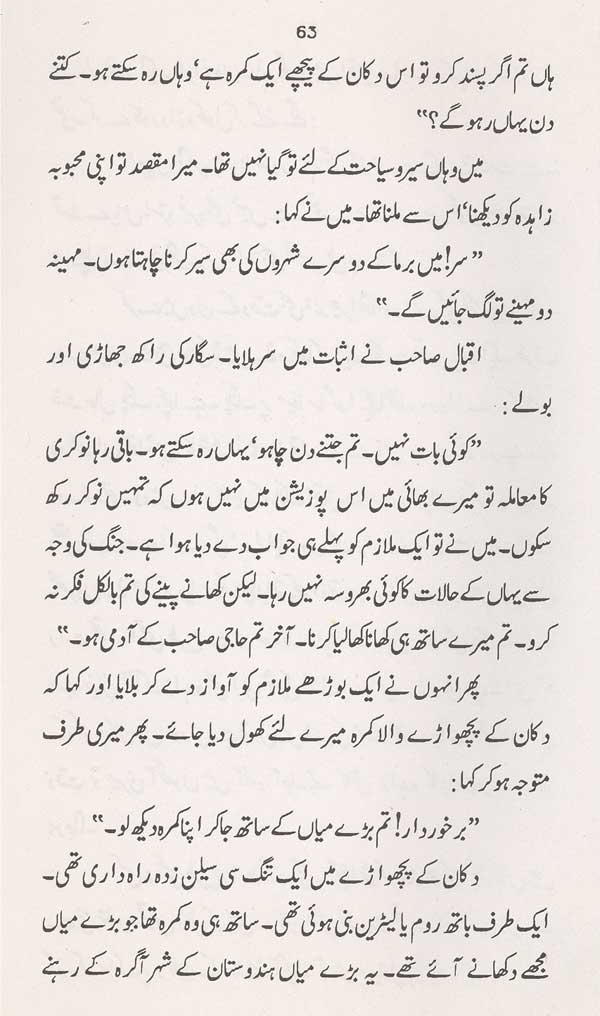 63
ہاں تم اگر پسند کرو تو اس دکان کے پیچھے ایک کمرہ ہے‘ وہاں رہ سکتے ہو۔ کتنے
دن یہاں رہو گے؟“
میں وہاں سیر و سیاحت کے لئے تو گیا نہیں تھا۔ میرا مقصد تو اپنی محبوبہ
زاہدہ کو دیکھنا‘ اس سے ملنا تھا۔ میں نے کہا:
”سر! میں برما کے دوسرے شہروں کی بھی سیر کرنا چاہتا ہوں۔ مہینہ
دو مہینے تو لگ جائیں گے۔“
اقبال صاحب نے اثبات میں سر ہلایا۔ سگار کی راکھ جھاڑی اور
بولے:
”کوئی بات نہیں۔ تم جتنے دن چاہو‘ یہاں رہ سکتے ہو۔ باقی رہا نوکری
کا معاملہ تو میرے بھائی میں اس پوزیشن میں نہیں ہوں کہ تمہیں نوکر رکھ
سکوں۔ میں نے تو ایک ملازم کو پہلے ہی جواب دے دیا ہوا ہے۔ جنگ کی وجہ
سے یہاں کے حالات کا کوئی بھروسہ نہیں رہا۔ لیکن کھانے پینے کی تم بالکل فکر نہ
کرو۔ تم میرے ساتھ ہی کھانا کھا لیا کرنا۔ آخر تم حاجی صاحب کے آدمی ہو۔“
پھر انہوں نے ایک بوڑھے ملازم کو آواز دے کر بلایا اور کہا کہ
دکان کے پچھواڑے والا کمرہ میرے لئے کھول دیا جائے۔ پھر میری طرف
متوجہ ہو کر کہا:
”برخوردار! تم بڑے میاں کے ساتھ جا کر اپنا کمرہ دیکھ لو۔“
دکان کے پچھواڑے میں ایک تنگ سی سیلن زدہ راہ داری تھی۔
ایک طرف باتھ روم یا لیٹرین بنی ہوئی تھی۔ ساتھ ہی وہ کمرہ تھا جو بڑے میاں
مجھے دکھانے آئے تھے۔ یہ بڑے میاں ہندوستان کے شہر آگرہ کے رہنے